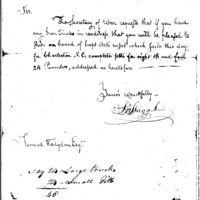 Sir
The Secretary of War requests that if you have
any Gun Trucks in readiness that you will be pleased to
Ship on board of Capt. vessel which sails this day
for Charleston S. C. complete setts for eight 18 and four
24 Pounders, addressed as heretofore
Yours respectfully
Samuel Hodgdon Esqr
Say 24 Large Trucks
24 Small ditto
48